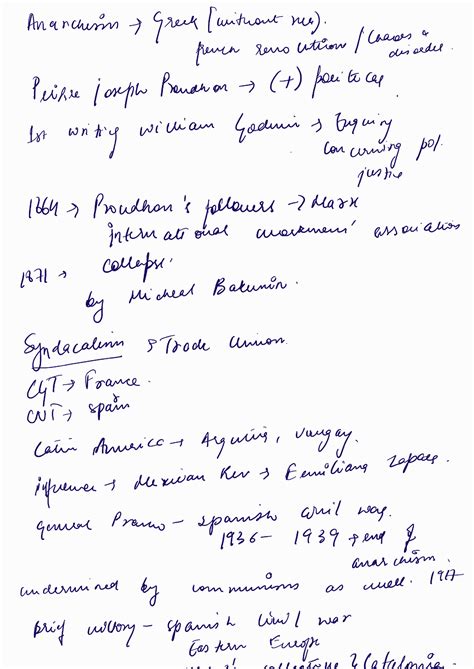 Anarchism → Greek [without rule].
french revolution / Chaos &
disorder
Peirre joseph Proudhon → (+) political
1st writing william Godwin → Enquiry
concerning pol.
justice
1864 → Proudhon's followers → Marx
international workmens' association
1871 → collapse.
by Micheal Bakunin.
Syndacalism → Trade Union.
CGT → France.
CNT → Spain
Latin America →
influence → Mexican Rev → Zapata.
general Franco – spanish civil war.
1936 – 1939 → end of
anarchism.
undermined by communism as well. 1917
brief victory – spanish civil war
Eastern Europe
& Catalonia